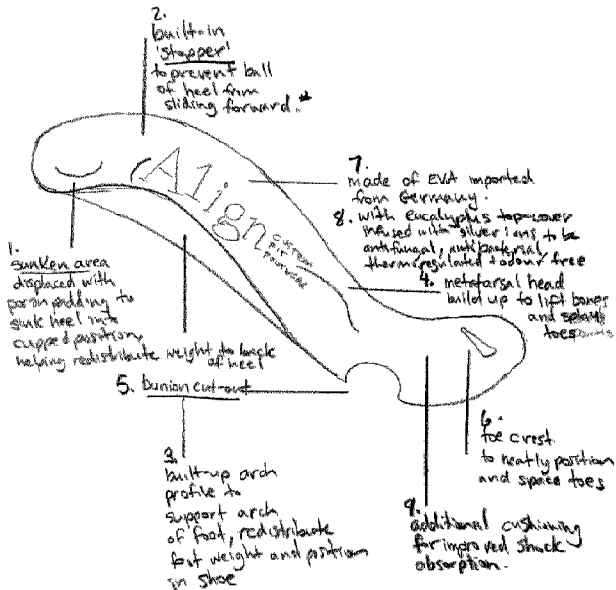 2.
built-in
'stopper'
to prevent ball
of heel from
sliding forward.*
Align
CUSTOM
FIT
FOOTWEAR
7.
made of EVA imported
from Germany.
8. with eucalyptus top-cover
infused with silver ions to be
antifungal, antibacterial,
thermoregulated + odour free
4. metatarsal head
build up to lift bones
and splay
toes
1.
sunken area
displaced with
poron padding to
sink heel into
cupped position,
helping redistribute weight to back
of heel
5. bunion cut-out
3.
built-up arch
profile to
support arch
of foot, redistribute
foot weight and position
in shoe
6.
toe crest
to neatly position
and space toes
9.
additional cushioning
for improved shock
absorption.